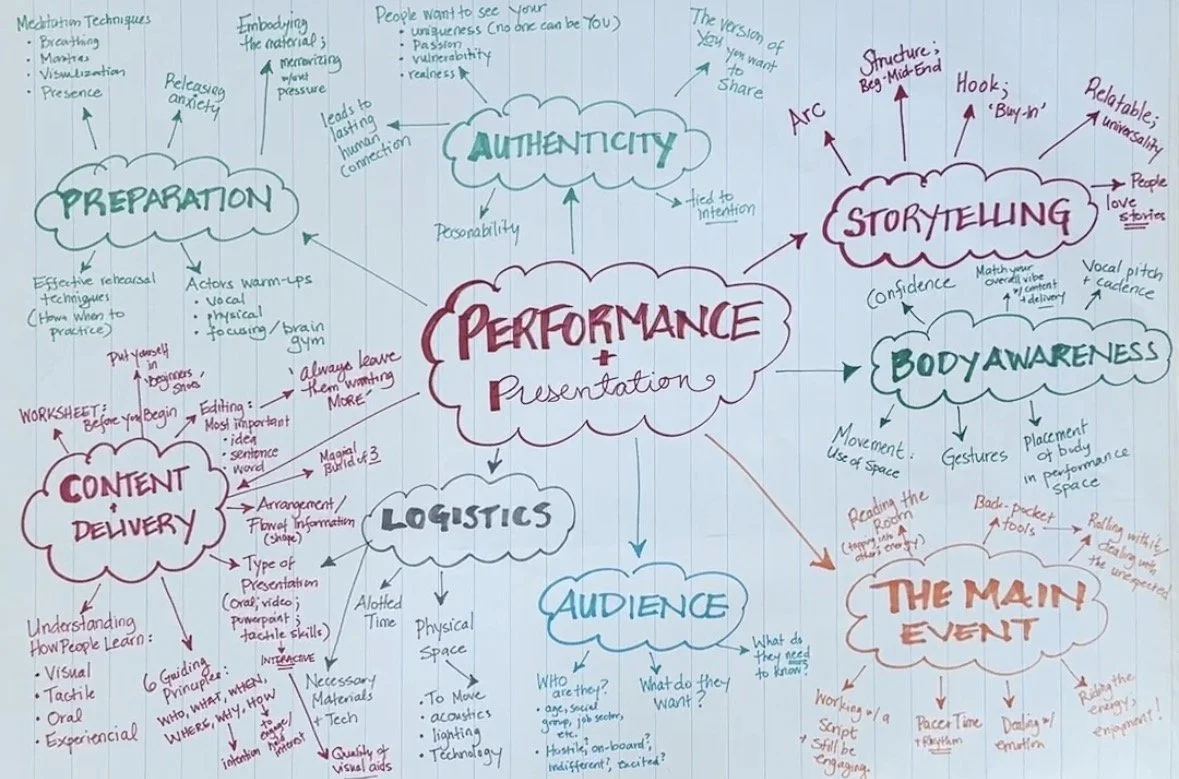 Meditation Techniques
• Breathing
• Mantras
• Visualization
• Presence
Releasing
anxiety
Embodying
the material;
memorizing
w/out
pressure
PREPARATION
Effective rehearsal
techniques
(How + when to
practice)
Actors warm-ups
• vocal
• physical
• focusing/brain
gym
People want to see your
• uniqueness (no one can be YOU)
• Passion
• vulnerability
• realness
The version of
You you want
to
Share
leads to
lasting
human
connection
AUTHENTICITY
Personability
tied to
intention
Arc
Structure;
Beg-Mid-End
Hook;
'Buy-In'
Relatable;
universality
STORYTELLING
People
love
stories
PERFORMANCE
+
Presentation
Confidence
Match your
overall vibe
w/ content
+ delivery
Vocal pitch
+ cadence
BODY AWARENESS
Movement:
Use of Space
Gestures
Placement
of body
in performance
space
Put yourself
in
'beginners'
shoes
WORKSHEET:
Before you Begin
Editing:
Most important
• idea
• sentence
• word
'always leave
them wanting
MORE'
Magical
Build of 3
CONTENT
+
DELIVERY
Arrangement/
Flow of Information
(shape)
Type of
Presentation
(Oral; video;
powerpoint;
tactile skills)
INTERACTIVE
Understanding
How People Learn:
• Visual
• Tactile
• Oral
• Experiencial
6 Guiding
Principles:
WHO, WHAT, WHEN,
WHERE, WHY, HOW
intention
to
engage/
hold
interest
Quality of
visual aids
LOGISTICS
Alotted
Time
Necessary
Materials
+ Tech
Physical
Space
• To Move
• acoustics
• lighting
• Technology
AUDIENCE
Who
are they?
• age, social
group, job sector,
etc.
• Hostile, on-board?,
indifferent?, excited?
What do they
want?
What do
they need
to know?
Reading the
Room
(tapping into
other's energy)
Back-pocket
tools
Rolling with it/
dealing with
the unexpected
THE MAIN
EVENT
Working w/a
script
+ still be
engaging
Pace + Time
+ Rhythm
Dealing w/
emotion
Riding the
energy,
enjoyment!